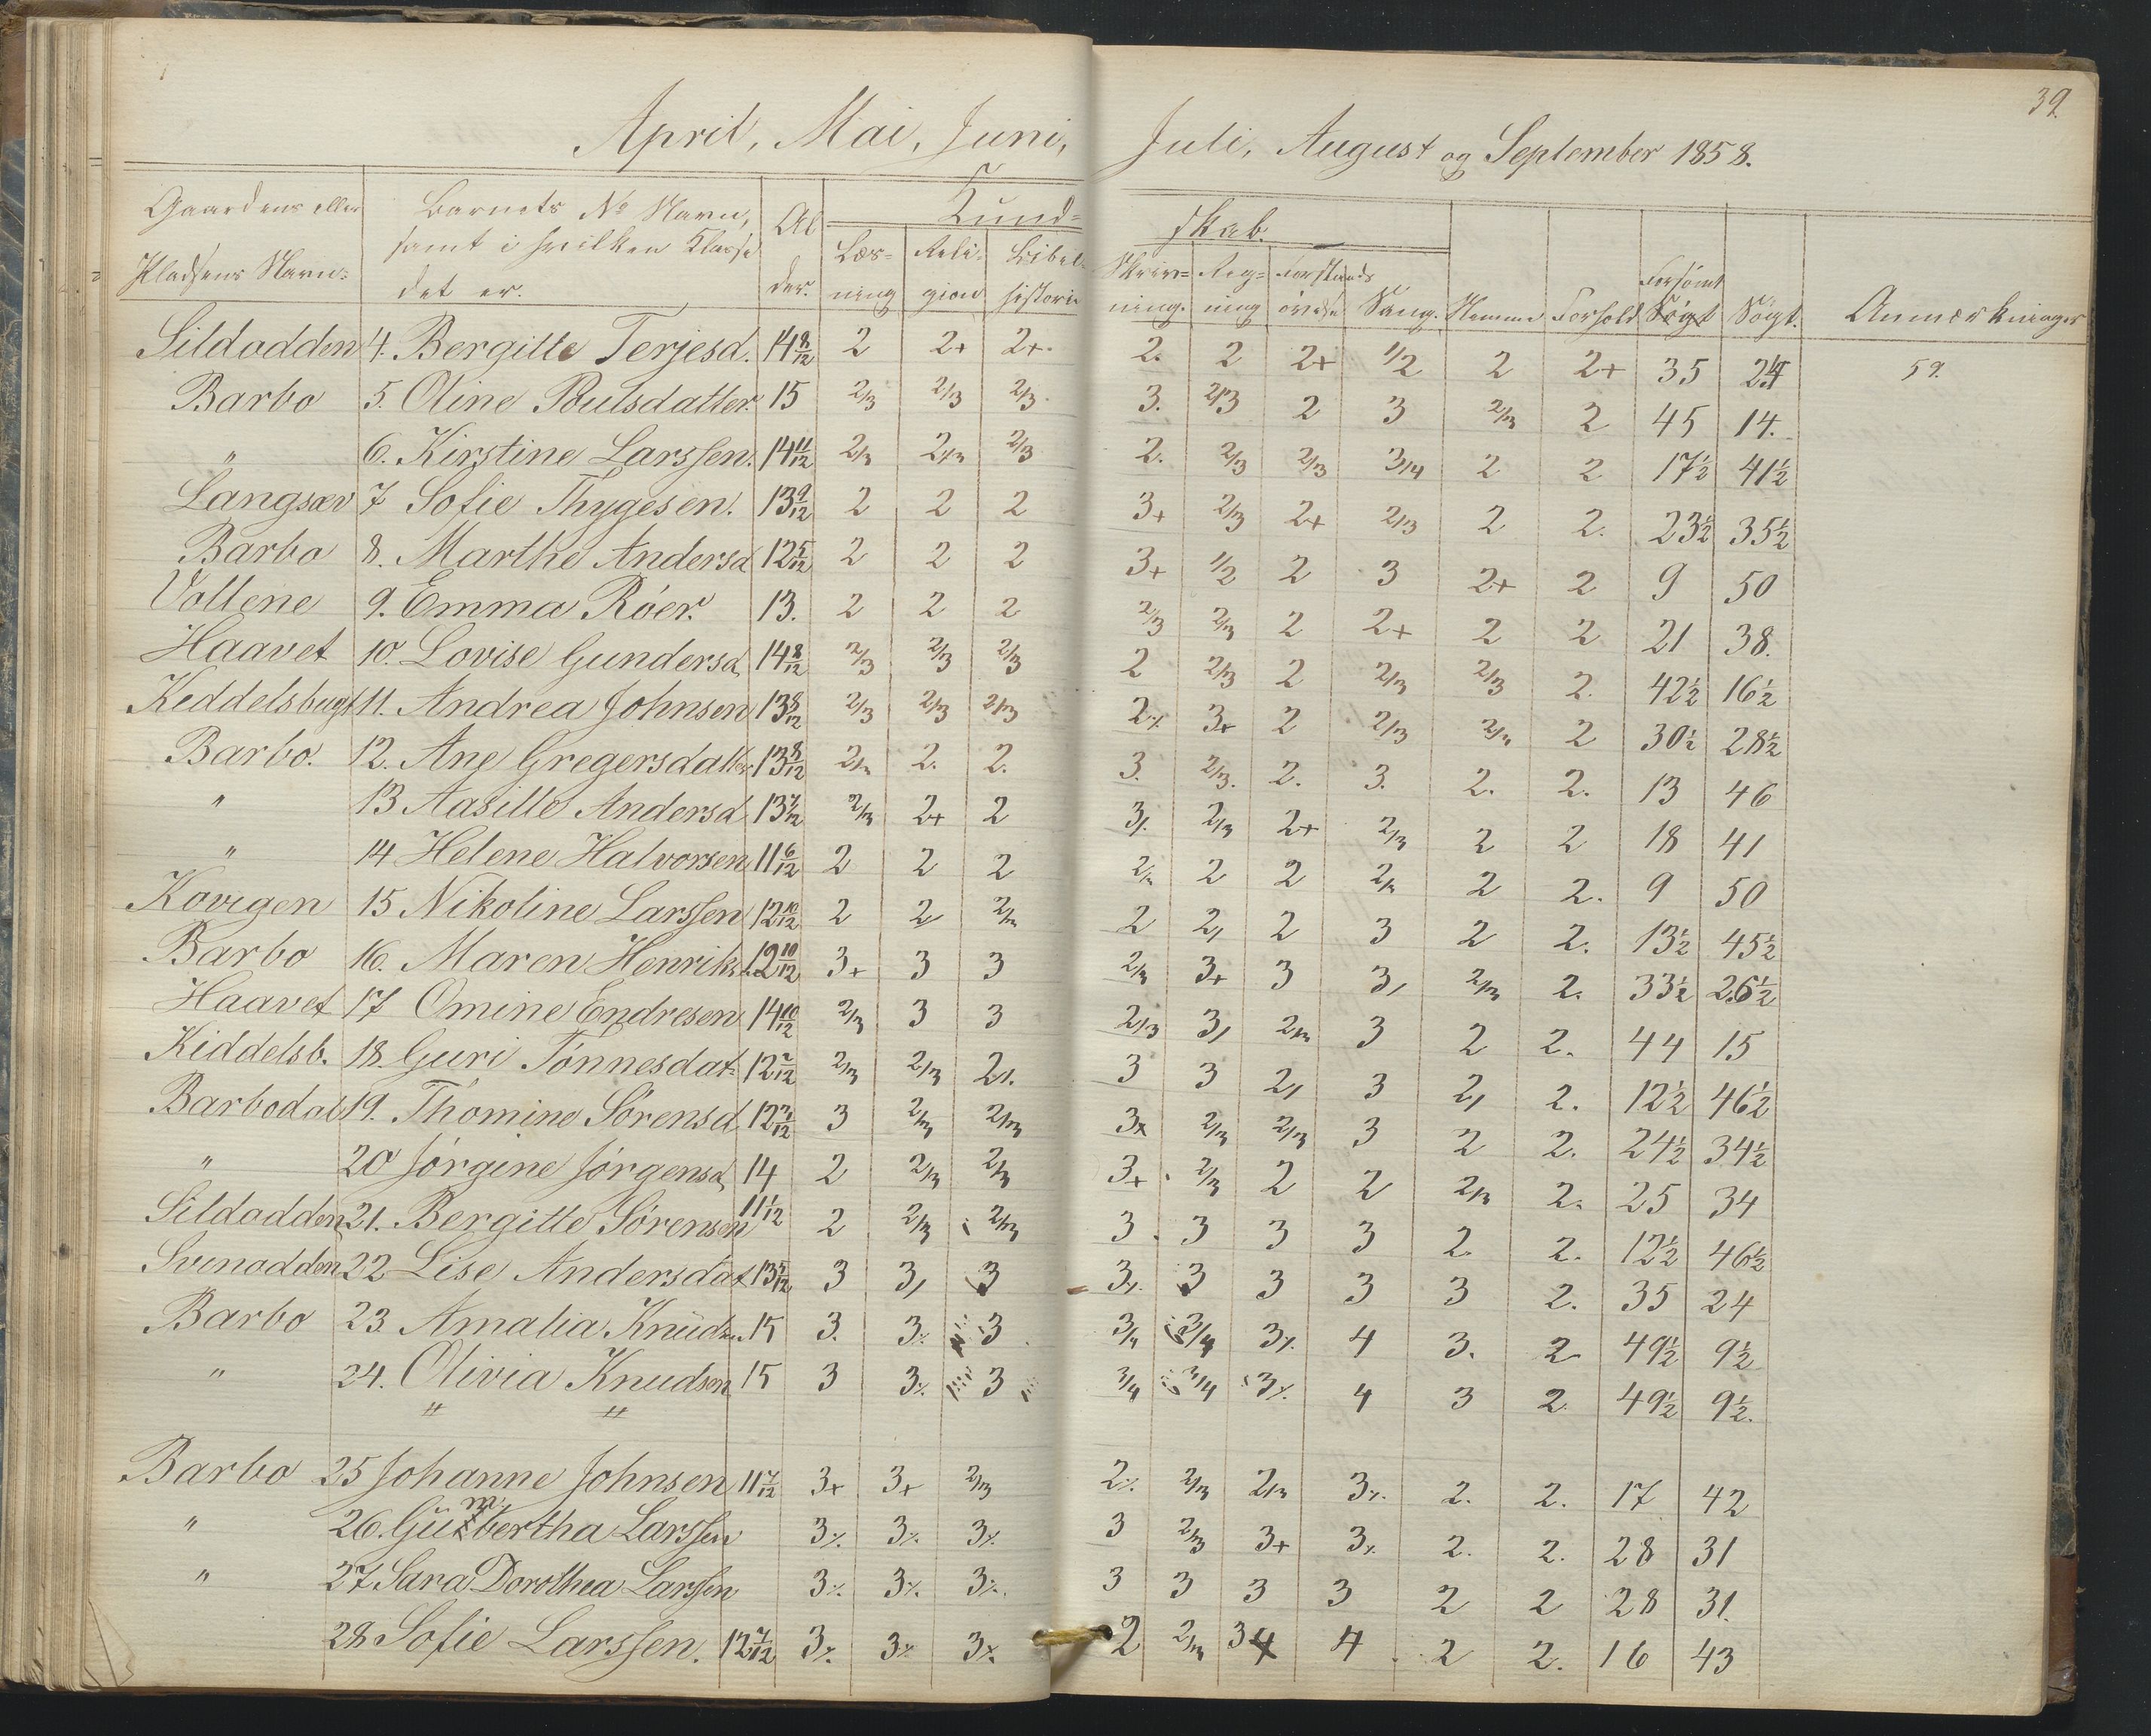 39.
April, Mai, Juni, Juli, August og September 1858.
Gaardens eller Pladsens Navn. | Barnets No Navn, samt i hvilken Klasse det er. | Alder. | Kundskab. Læsning | Religion | Bibelhistorie | Skrivning. | Regning | Forstandsövelse | Sang. | Nemme | Forhold | Forsömt | Sögt. | Anmærkninger
Sildodden 4. Bergitte Terjesd. 14 8/12 2 2+ 2+. 2. 2 2+ 1/2 2 2+ 35 24 59.
Barbo 5. Oline Poulsdatter. 15 2/3 2/3 2/3. 3. 2/3 2 3 2/3 2 45 14.
" 6. Kirstine Larssen. 14 11/12 2/3 2/3 2/3 2. 2/3 2/3 3/4 2 2 17½ 41½
Langsæv 7 Sofie Thygesen. 13 9/12 2 2 2 3+ 2/3 2+ 2/3 2 2. 23½ 35½
Barbo 8. Marthe Andersd 12 5/12 2 2 2 3+ 1/2 2 3 2+ 2 9 50
Vollene 9. Emma Röer. 13. 2 2 2 2/3 2/3 2 2+ 2 2 21 38.
Haavet 10. Lovise Gundersd, 14 8/12 2/3 2/3 2/3 2 2/3 2 2/3 2/3 2. 42½ 16½
Keddelsbugt 11. Andrea Johnsen 13 8/12 2/3 2/3 2/3 2% 3+ 2 2/3 2/3 2 30½ 28½
Barbo. 12. Ane Gregersdatter 13 8/12 2/3 2. 2. 3. 2/3. 2. 3. 2. 2. 13 46
" 13 Aasille Andersd 13 7/12 2/3 2+ 2 3/. 2/3 2+ 2/3 2 2 18 41
" 14 Helene Halvorsen 11 6/12 2 2 2 2/3 2 2 2/3 2 2. 9 50
Kovigen 15 Nikoline Larssen 12 10/12 2 2 2/3 2 2, 2 3 2 2. 13½ 45½
Barbo 16. Maren Henriks. 12 10/12 3+ 3 3 2/3 3+ 3 3, 2/3 2. 33½ 26½
Haavet 17 Omine Endresen 14 10/12 2/3 3 3 2/3 3, 2/3 3 2 2. 44 15
Kiddelsb. 18. Guri Tönnesdat= 12 2/12 2/3 2/3 2/. 3 3 2, 3 2, 2. 12½ 46½
Barbodal 19. Thomine Sörensd 12 3/12 3 2/3 2/3 3+ 2/3 2/3 3 2 2. 24½ 34½
" 20 Jörgine Jörgensd, 14 2 2/3 2/3 3+ 2/3 2 2 2/3 2. 25 34
Sildodden 21. Bergitte Sörensen 11 1/12 2 2/3 2/3 3 3 3 3 2. 2. 12½ 46½
Svinodden 22 Lise Andersdat 13 5/12 3 3, 3 3% 3 3 3 3 2. 35 24
Barbo 23. Amalia Knuds. 15 3. 3% 3 3/4 3/4 3% 4 3. 2 49½ 9½
" 24. Olivia Knudsen 15 3 3% 3 3/4 3/4 3% 4 3 2. 49½ 9½.
" "
Barbo 25 Johanne Johnsen 11 7/12 3+ 3+ 2/3 2% 2/3 2/3 3% 2. 2. 17 42
" 26. Gumbertha Larssen 3% 3% 3% 3 2/3 3+ 3% 2. 2. 28 31
" 27. Sara Dorothea Larssen 3% 3% 3% 3 3 3 3 2 2 28 31.
28. Sofie Larssen. 12 7/12 3% 3% 3% 2 2/3 3 4 2 2. 16 43